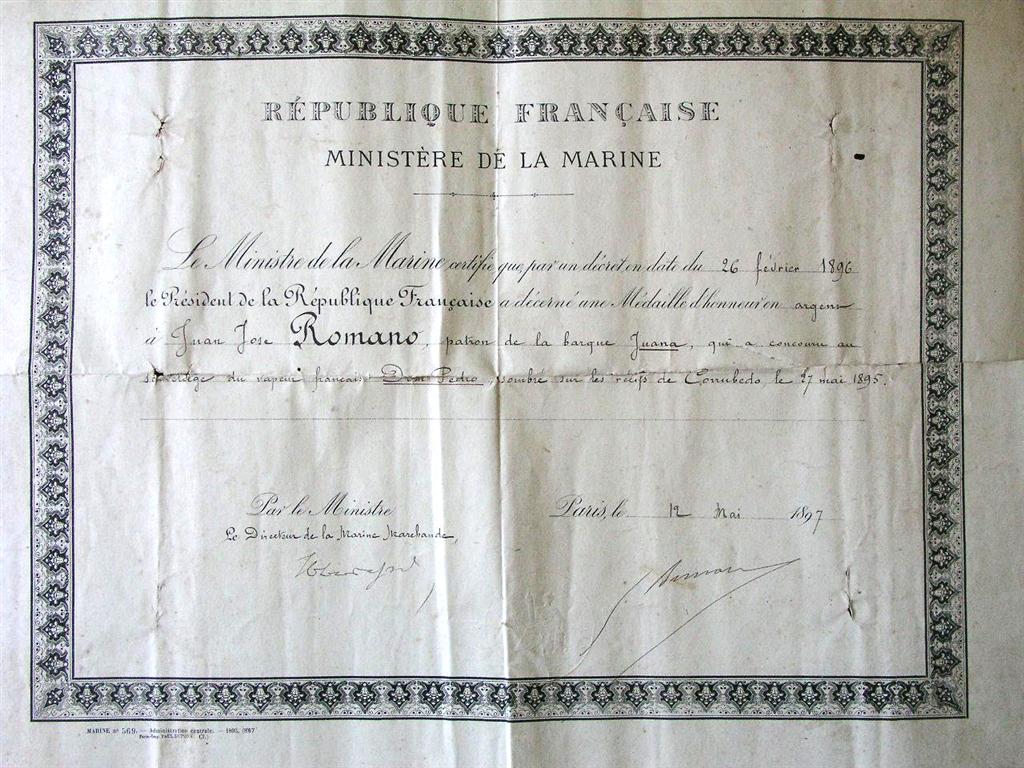 RÉPUBLIQUE FRANÇAISE
MINISTÈRE DE LA MARINE
Le Ministre de la Marine certifie que, par un décret en date du 26 février 1896
le Président de la République Française a décerné une Médaille d'honneur en argent
à Juan Jose Romano, patron de la barque Juana, qui a concouru au
sauvetage du vapeur français Don Pedro, sombré sur les récifs de Corrubedo le 27 mai 1895.
Par le Ministre
Le Directeur de la Marine Marchande,
Paris, le 12 Mai 1897
MARINE nº 569. — Administration centrale. — 1895.